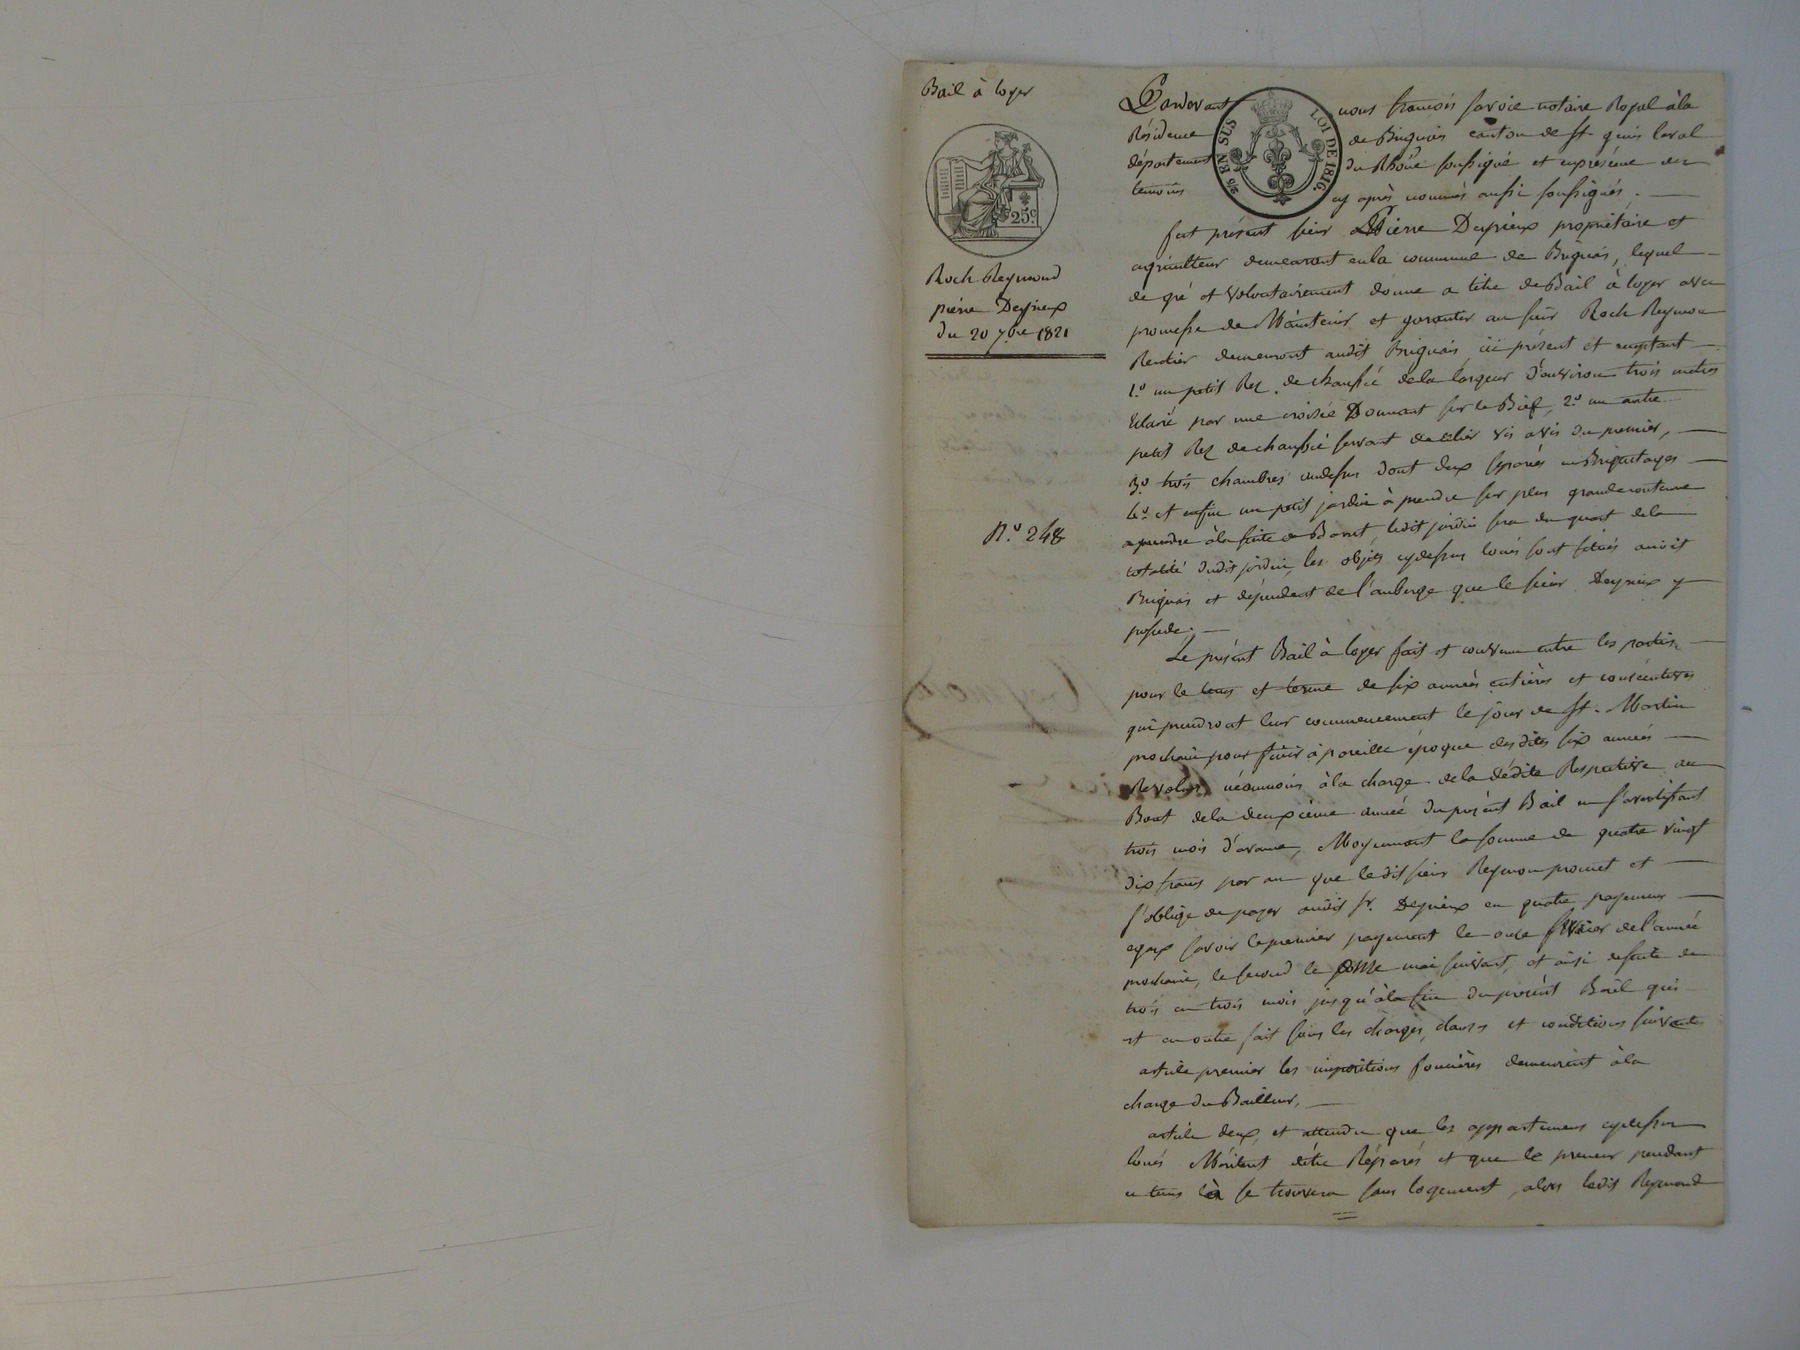 Bail à loyer
25c
Roch Reymond
pierre Deyrieux
du 20 7bre 1821
N.o 248
Pardevant nous francois favoie notaire Royal à la
Résidence de Briguais canton de St. genis laval
département du Rhône soussigné et en présence des
temoins cy après nommés aussi soussignés. —
EN SUS
LOI DE 1816.
fut présent sieur Pierre Deyrieux propriétaire et
agriculteur demeurant en la commune de Briguais, lequel
de gré et volontairement donne a titre de Bail à loyer avec
promesse de Maintenir et garantir au sieur Roch Reymon
Rentier demeurant audit Briguais, ici présent et acceptant —
1.o un petit Rez de chaussé de la largeur d'environ trois metres
Eclairé par une croisée Donnant sur le Bief, 2.o un autre
petit Rez de chaussé servant de célier vis avis du premier, —
3.o trois chambres au dessus dont deux séparées en Briquetages —
4.o et enfin un petit jardin à prendre sur plus grande contenue
a prendre à la suite de Barret, ledit jardin sera du quart de la
totalité dudit jardin, les objets cy dessus loués sont situés audit
Briguais et dépendent de l'auberge que le sieur Deyrieux y
possede. —
Le présent Bail à loyer fait et convenu entre les parties —
pour le tems et terme de six années entières et consécutives
qui prendront leur commencement le jour de St. Martin
prochain pour finir à pareille époque desdites six années —
Revolues néanmoins à la charge de la dédite Respective au
Bout de la deuxième année du présent Bail en s'avertissant
trois mois d'avance, Moyennant la somme de quatre vingt
dix francs par an que ledit sieur Reymon promet et —
s'oblige de payer audit sr. Deyrieux en quatre payemens —
egaux savoir le premier payement le onze février de l'année
prochaine, le second le onze mai suivant, et ainsi de suite de
trois en trois mois jusqu'à la fin du présent Bail qui
est en outre fait sous les charges, clauses et conditions suivantes
article premier les impositions foncières demeurent à la
charge du Bailleur, —
article deux, et attendu que les appartemens cy dessus
loués Méritent d'être Réparés et que le preneur pendant
ce tems là se trouvera sans logement, alors ledit Reymond